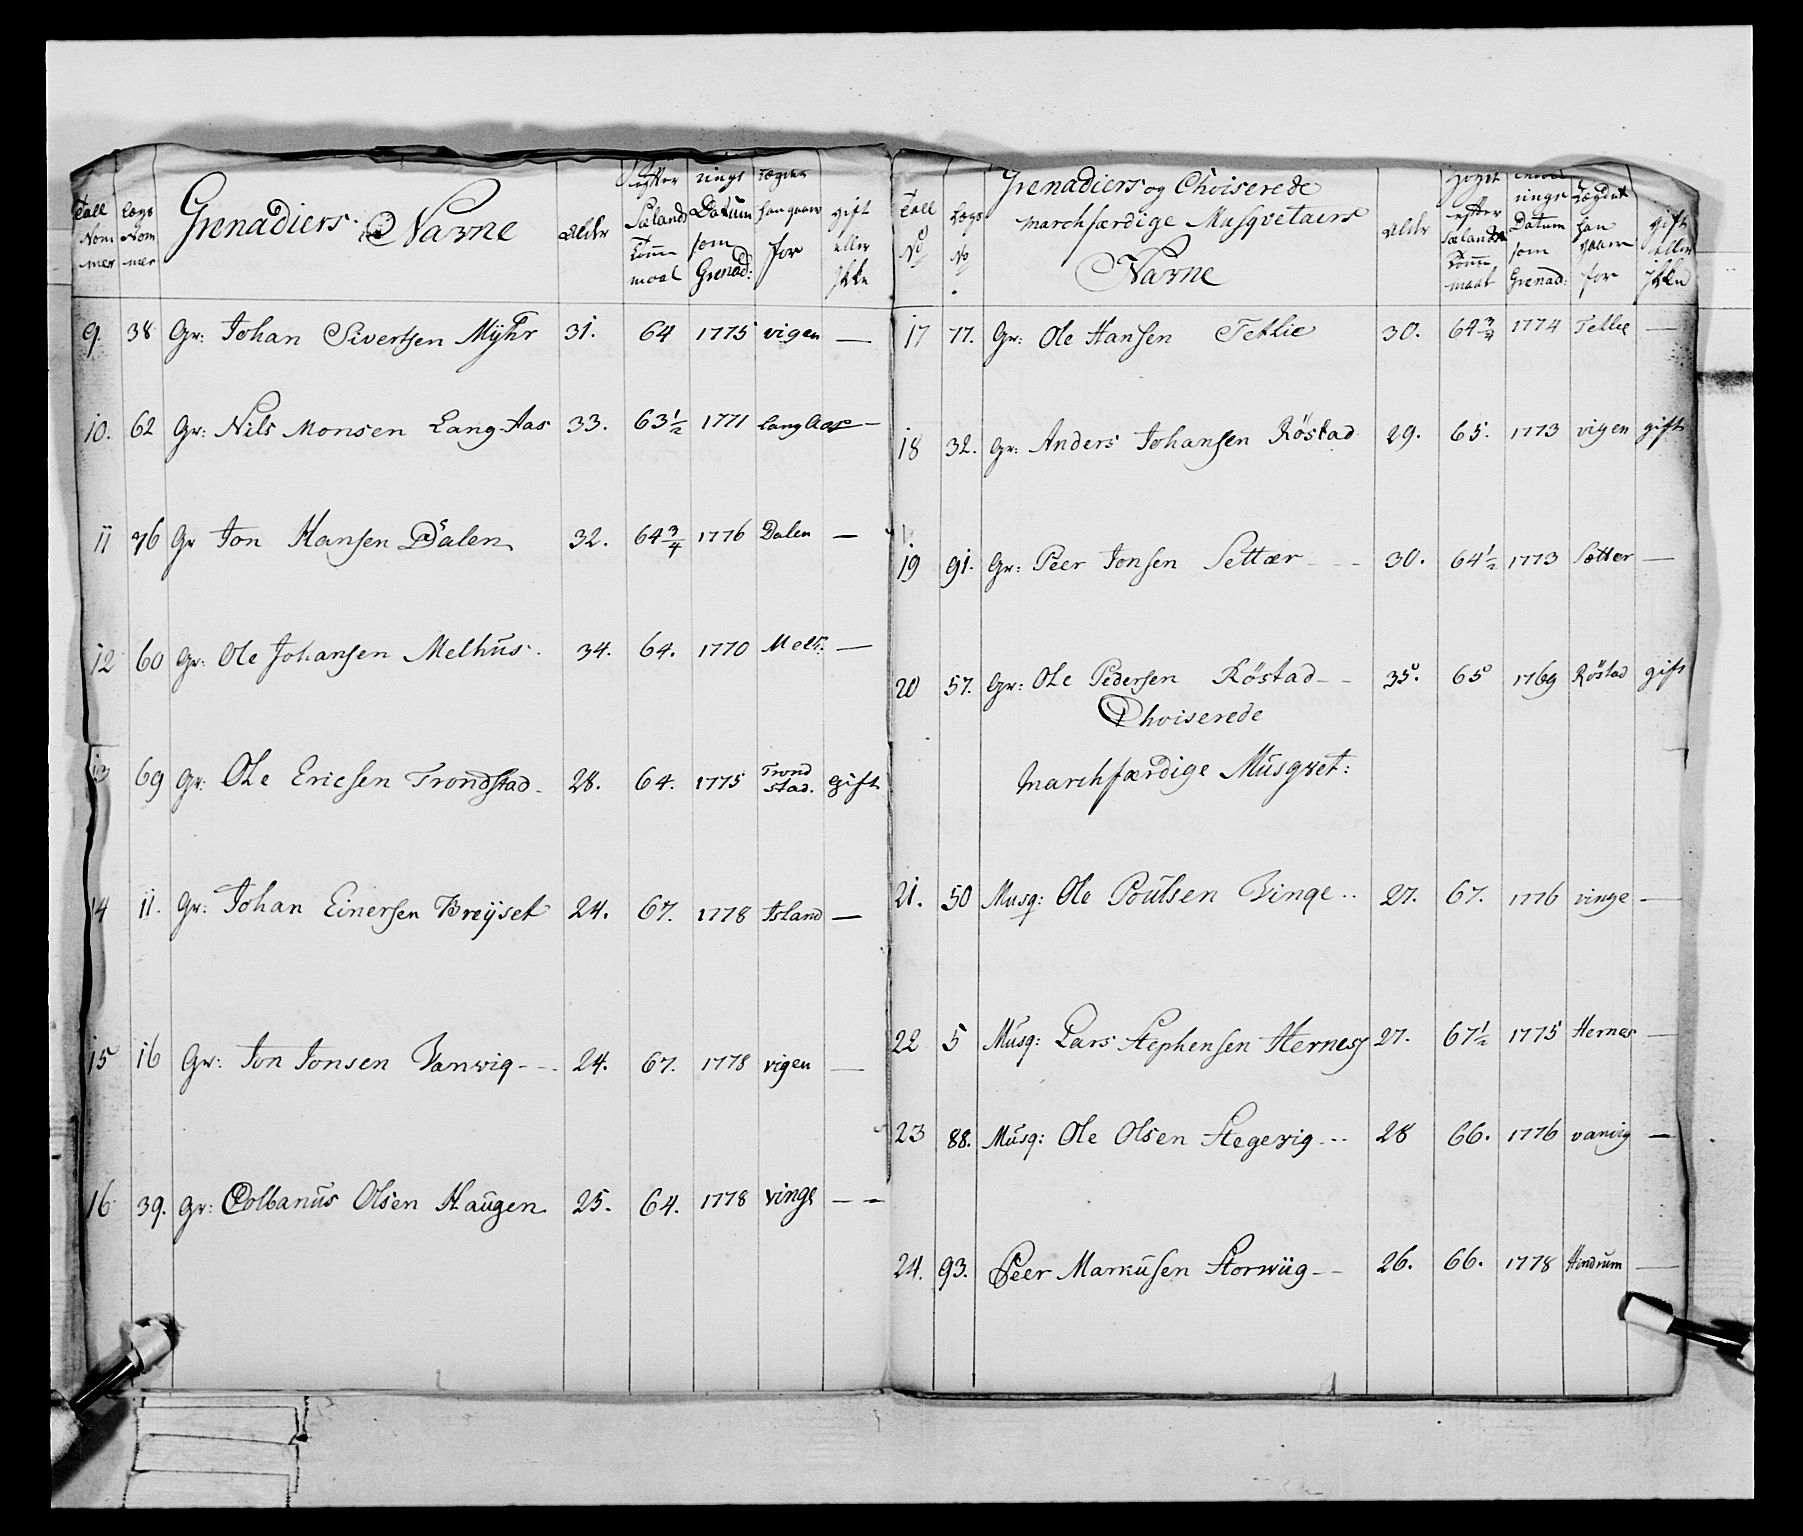 Tall Nom mer | Lægs Nom mer | Grenadiers Navne | Alder | efter Sælands Tomme maal | rings Datum som Grenad: | Lægder han gaaer for | gift eller Ikke
9. 38 Gr: Johan Sivertsen Myhr 31. 64 1775 vigen —
10. 62 Gr: Nils Monsen Lang-Aas 33. 63 1/2 1771 Lang Aas —
11 76 Gr Jon Hansen Dalen 32. 64 3/4 1776 Dalen —
12 60 Gr: Ole Johansen Melhus. 34. 64. 1770 Melh. —
13 69 Gr: Ole Ericsen Trondstad 28. 64. 1775 Trond stad. gift
14 11. Gr: Johan Einersen Breÿset 24. 67. 1778 Island —
15 16 Gr: Jon Jonsen Vanvig 24. 67. 1778 vigen —
16 39. Gr: Colbanus Olsen Haugen 25. 64. 1778 vinge — —
Tall No | Lægs No | Grenadiers og Choiserede marchfærdige Musqvetairs Navne | Alder | Højst efter Sælands Tomme maal | rings Datum som Grenad: | Lægdet han gaaer for | gift eller Ikke
17 77. Gr: Ole Hansen Tetlie 30. 64 3/4 1774 Tetlie —
18 32. Gr: Anders Johansen Röstad 29. 65. 1773 vigen gift
19 91. Gr: Peer Jonsen Settær 30. 64 1/2 1773 Sætter —
20 57. Gr: Ole Pedersen Röstad 35. 65 1769 Röstad gift
Choiserede
Marchfærdige Musqvet:
21. 50 Musq: Ole Poulsen Vinge 27. 67. 1776 vinge —
22 5 Musq: Lars Stephensen Hernes 27. 67 1/2 1775 Hernes —
23 88. Musq: Ole Olsen Stegevig 28 66. 1776 vanvig —
24. 93. Peer Markusen Storwiig 26. 66. 1778 Hindrum —